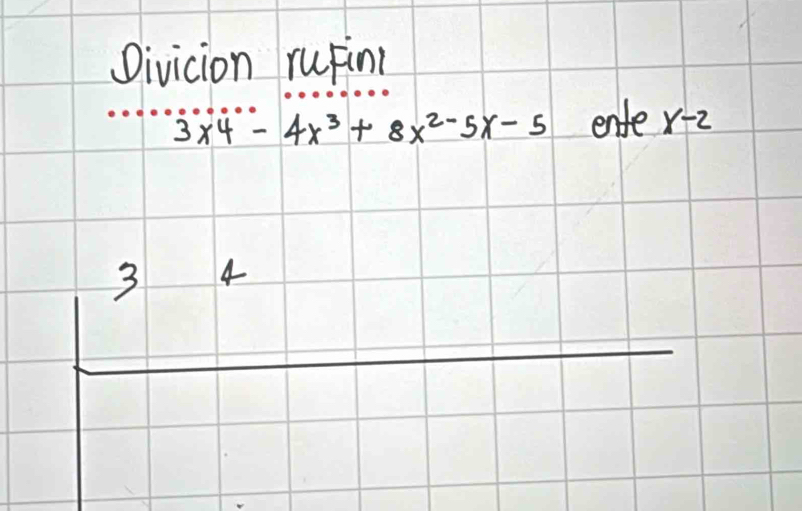 Divicion rufini
3x4 - 4x³ + 8x²-5x-5 ente x-2
3 4